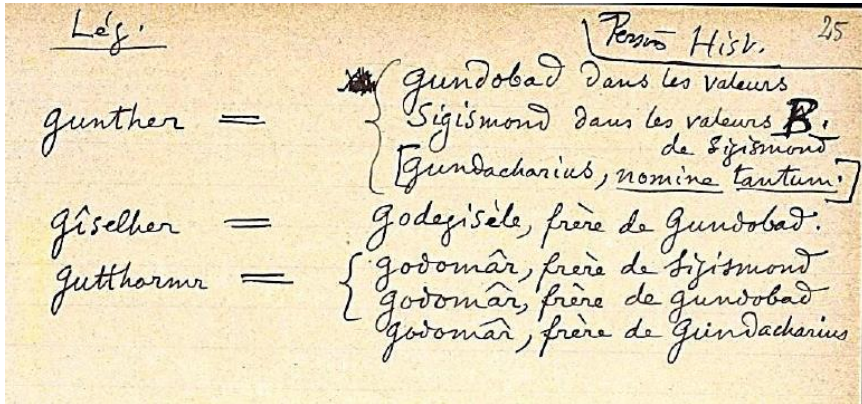 Lég. Perso Hist. 25
Gundobad dans les valeurs
gunther = Sigismond dans les valeurs B.
de Sigismond
[Gundacharius, nomine tantum.]
gîselher = godegisèle, frère de Gundobad.
guthormr = godomâr, frère de Sigismond
godomâr, frère de gundobad
godomâr, frère de Gundacharius